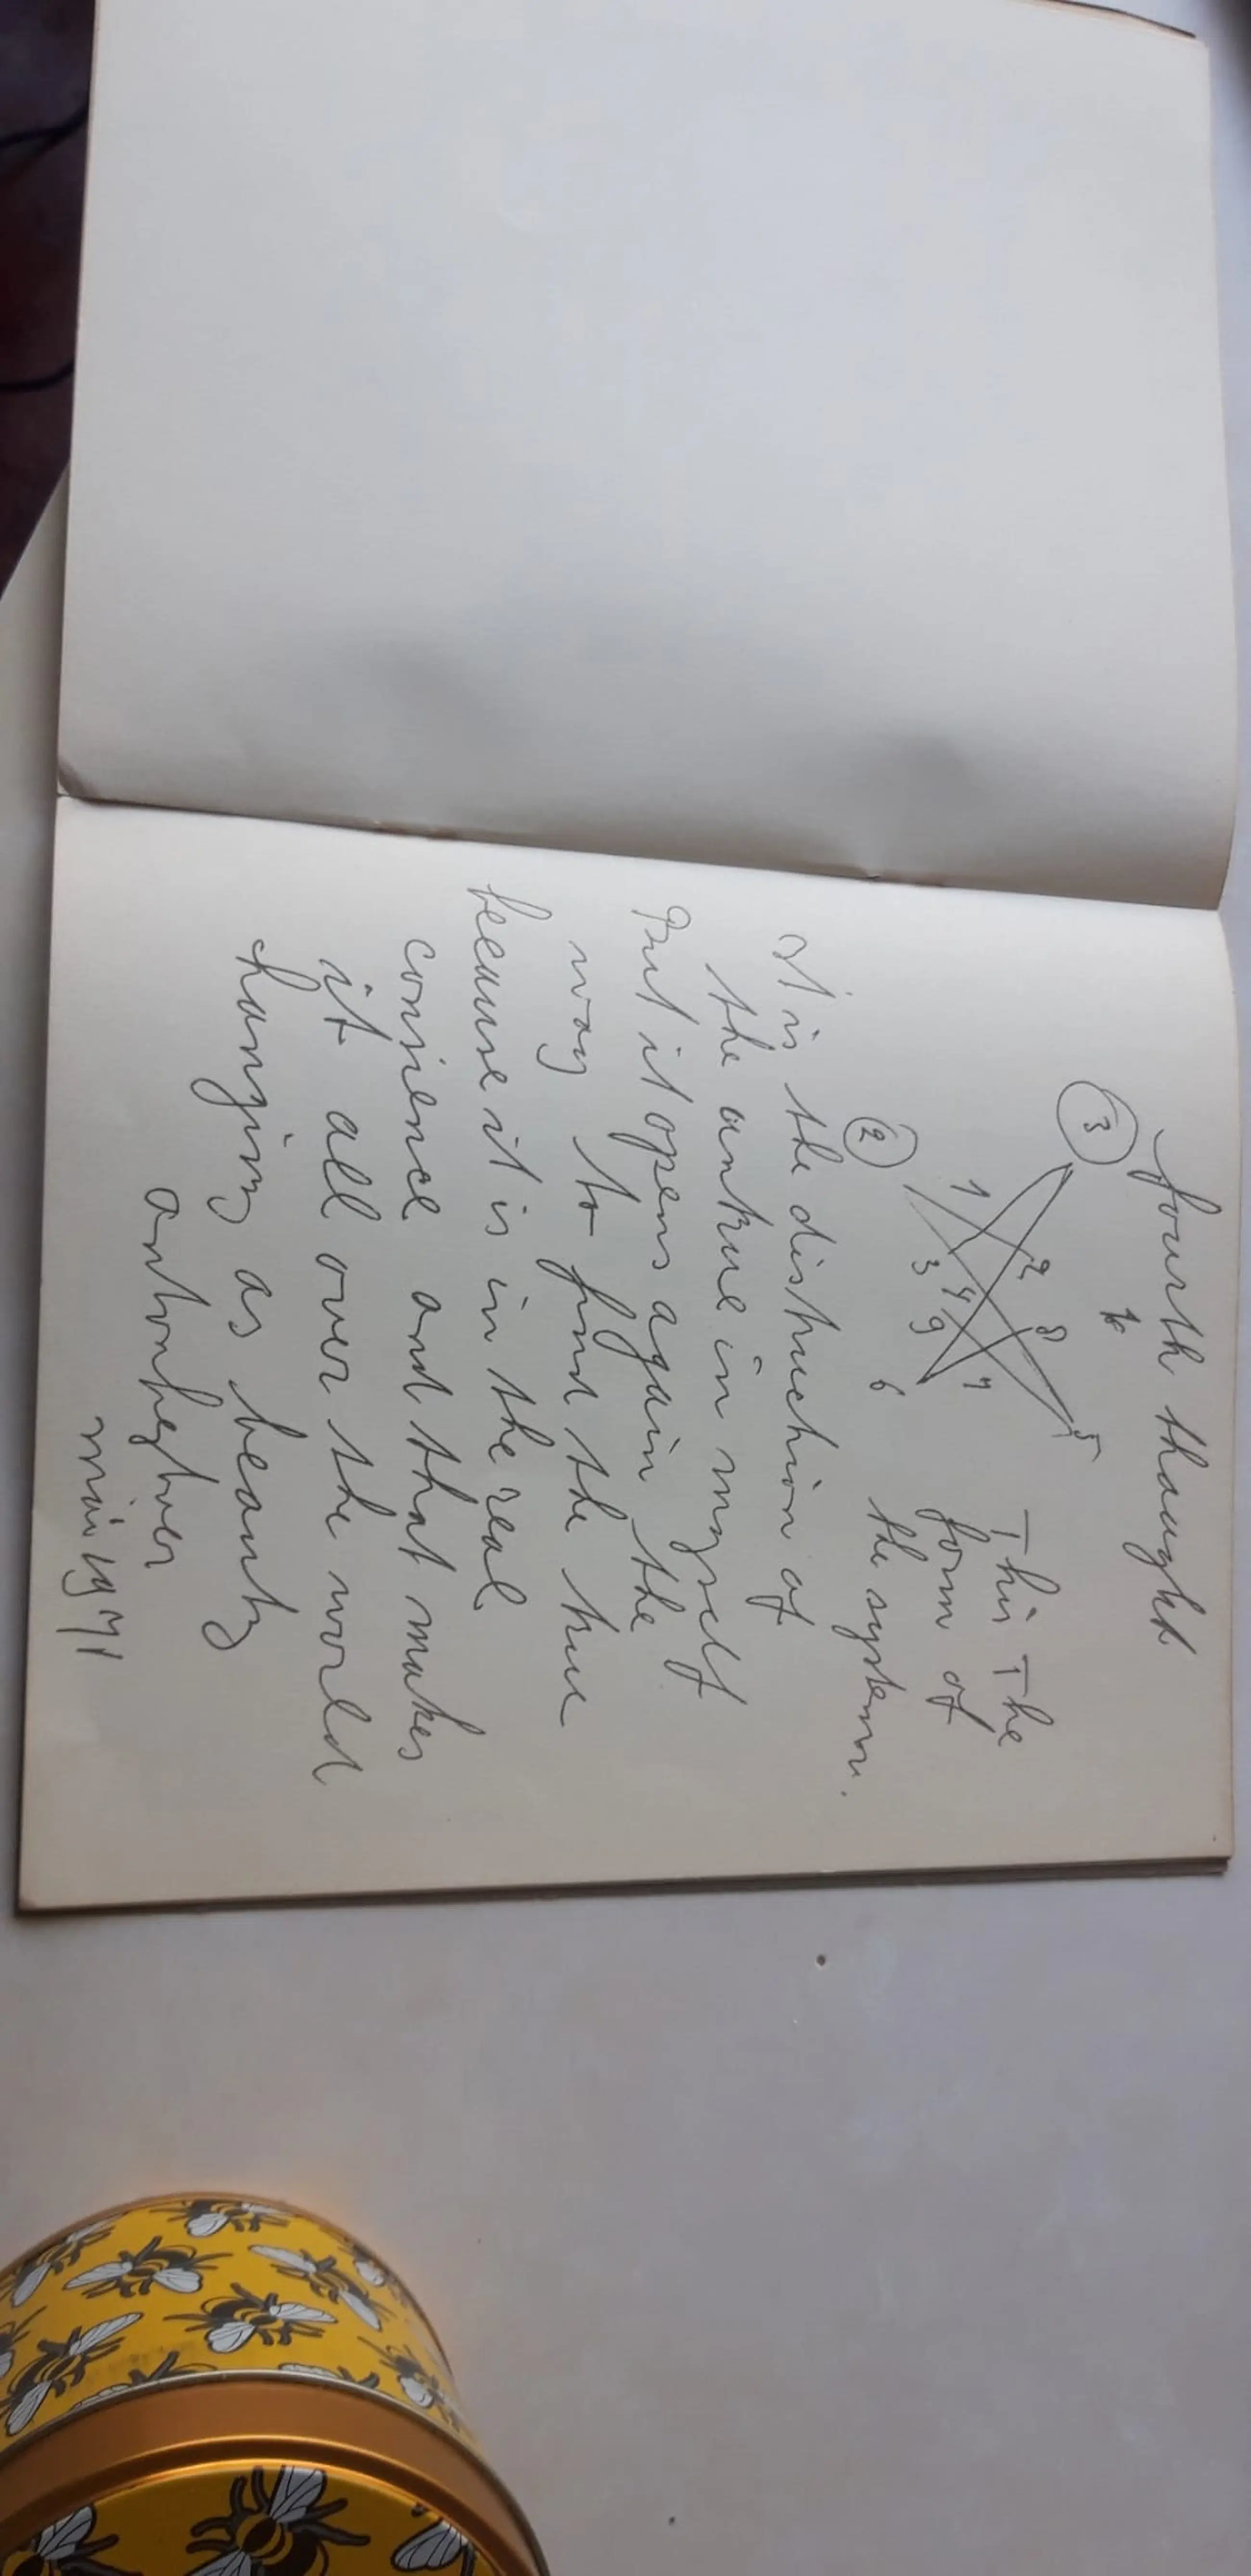 fourth thought
3
5
This The
2
8
form of
1
4
7
3
9
2
6
the system.
It is the distruction of
the untrue in myself
But it opens again the
way to find the true
because it is in the real
consience and that makes
it all over the world
changing as beauty
anton heyboer
mei 1971